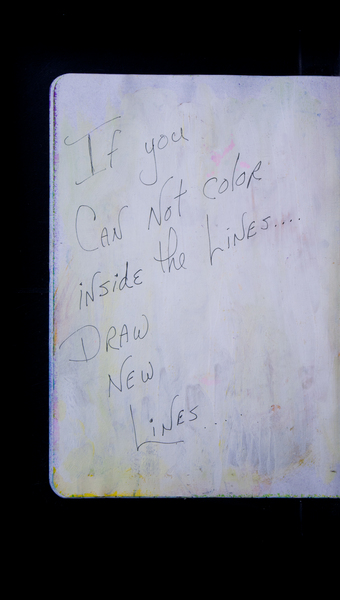 If you
CAN Not coloR
iNside the LiNES....
DRAW
NEW
LiNES.....